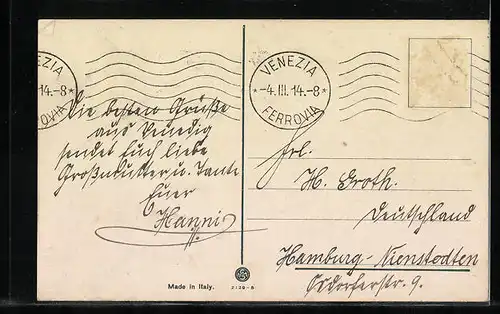 VENEZIA
-4.III.14.-8
FERROVIA
EZIA
14.-8
OVIA
Die besten Grüße
aus Venedig
sendet Euch liebe
Großmutter u. Tante
Euer
Hanni
Frl.
H. Groth.
Deutschland
Hamburg-Nienstedten
Osdorferstr. 9.
Made in Italy.
2139-8